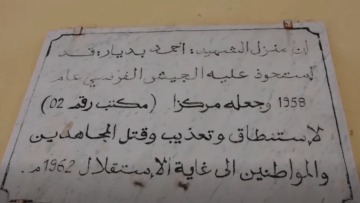 إن منزل الشهيد: احمد بديار، قد
إستحوذ عليه الجيش الفرنسي عام
1958 وجعله مركزا (مكتب رقم 02)
لإستنطاق وتعذيب وقتل المجاهدين
والمواطنين الى غاية الإستقلال 1962م.